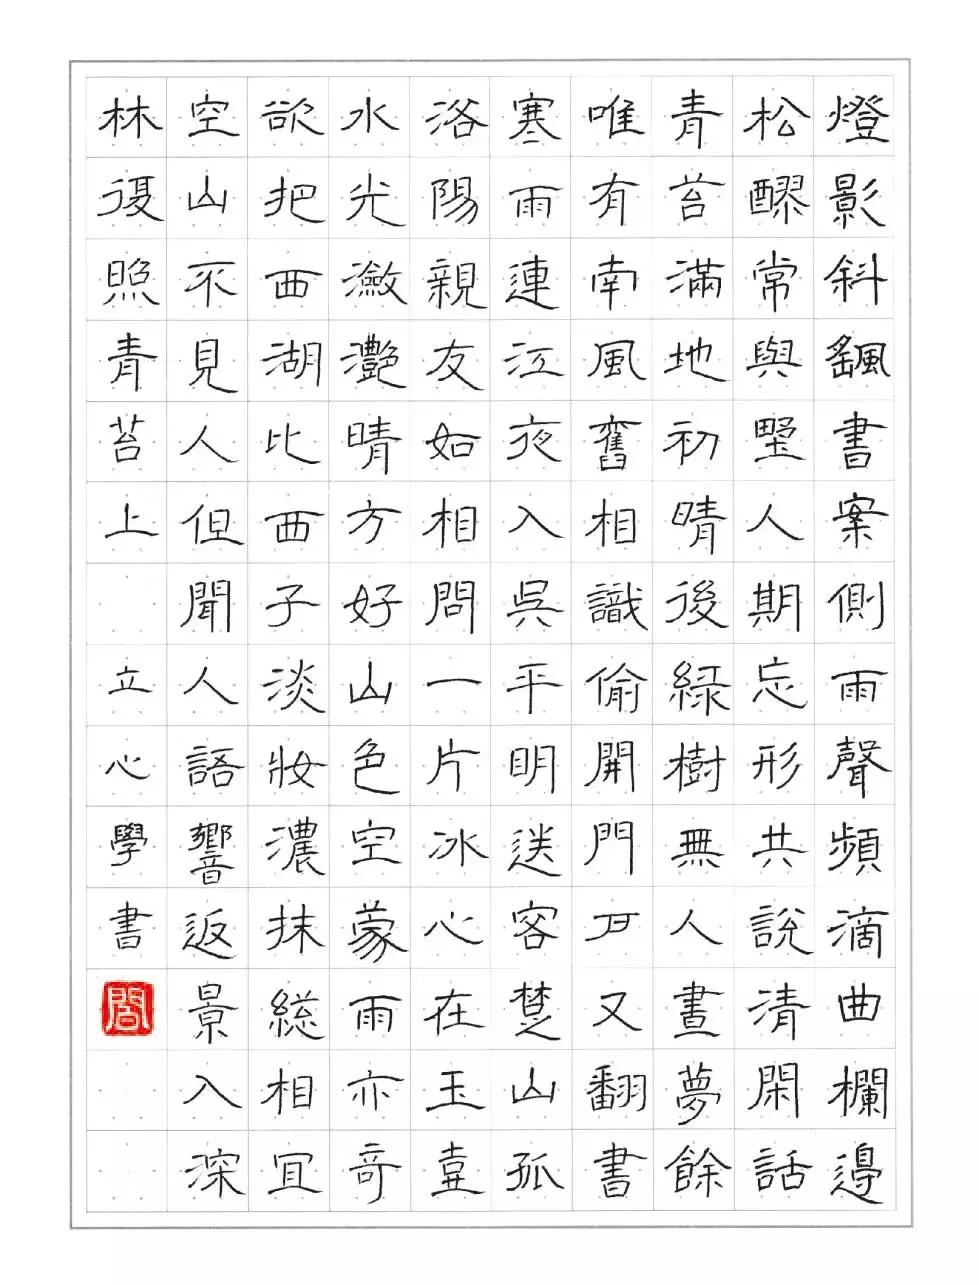 燈影斜颻書案側雨聲頻滴曲欄邊
松醪常與墅人期忘形共說清閑話
青苔滿地初晴後綠樹無人晝夢餘
唯有南風舊相識偷開門戶又翻書
寒雨連江夜入吳平明送客楚山孤
洛陽親友如相問一片冰心在玉壺
水光瀲灩晴方好山色空蒙雨亦奇
欲把西湖比西子淡妝濃抹總相宜
空山不見人但聞人語響返景入深
林復照青苔上 立心學書